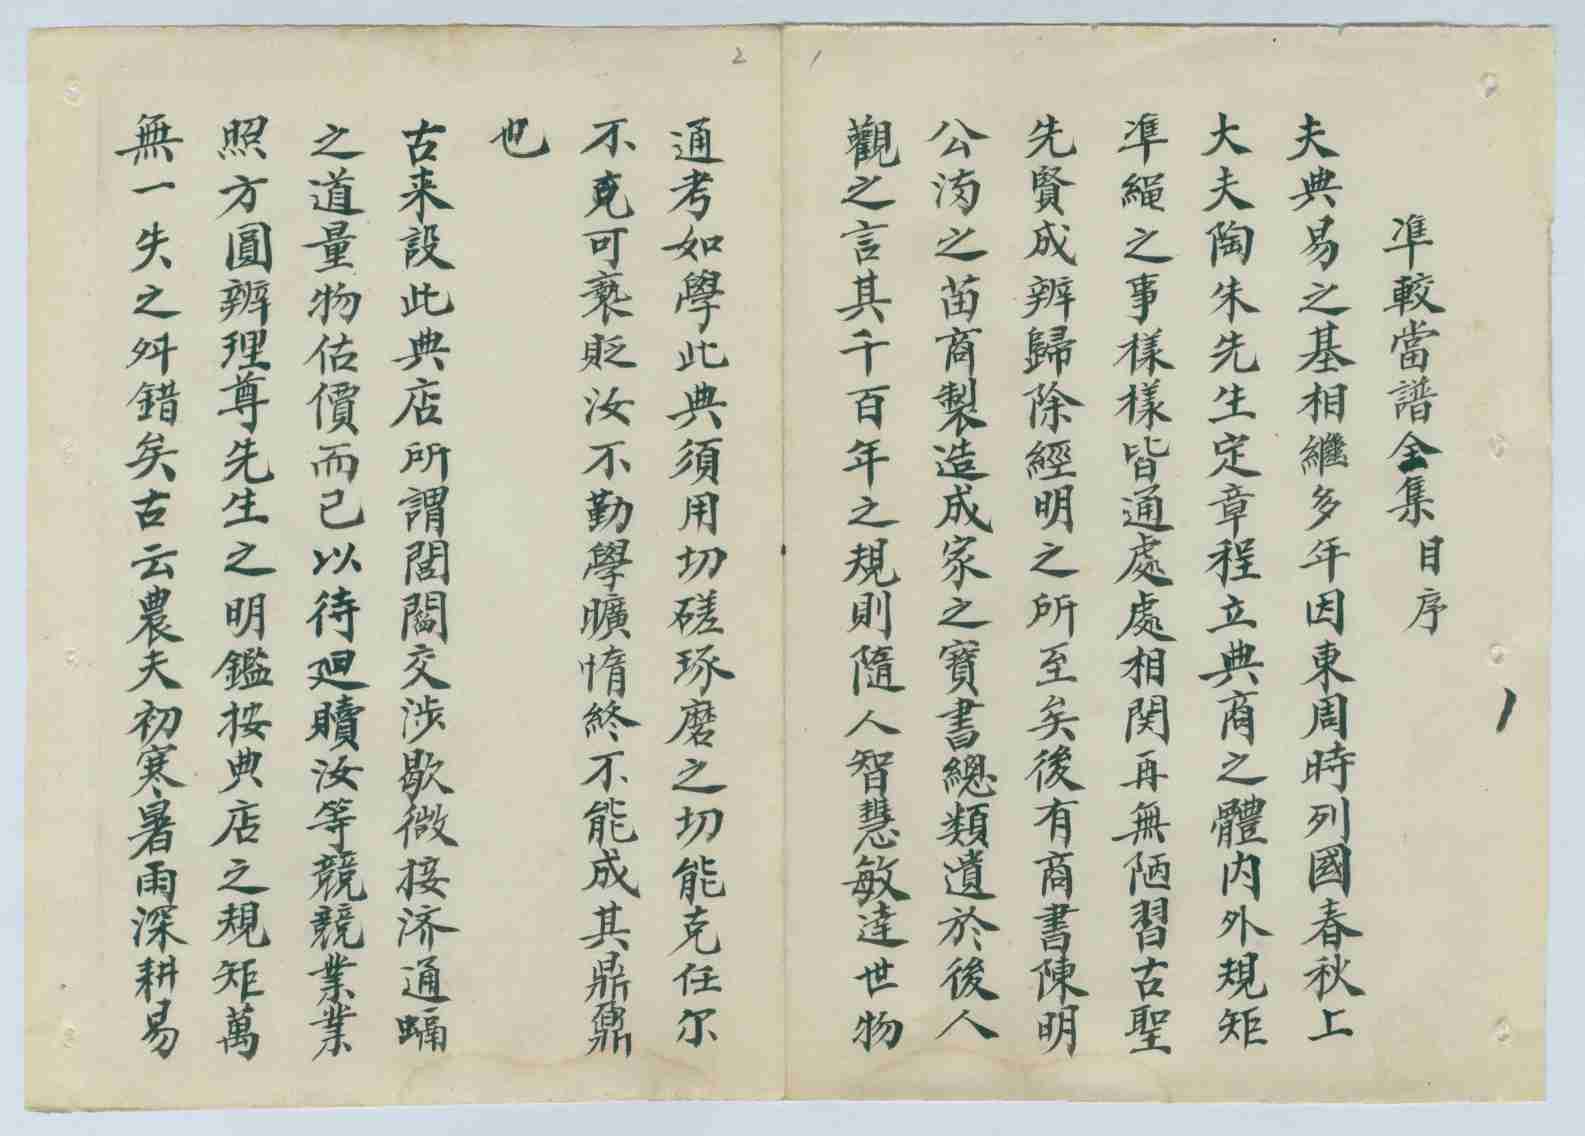 準較當譜全集目序
夫典易之基相繼多年因東周時列國春秋上
大夫陶朱先生定章程立典商之體内外規矩
準繩之事樣樣皆通處處相関再無陋習古聖
先賢成辨歸除經明之所至矣後有商書陳明
公湾之苗商製造成家之寳書總類遺於後人
觀之言其千百年之規則隨人智慧敏達世物
通考如學此典須用切磋琢磨之切能克任尔
不克可褻貶汝不勤學曠惰終不能成其鼎鼐
也
古来設此典店所謂閭閻交涉歇微接济通
之道量物估價而已以待廻贖汝等競競業業
照方圓辨理尊先生之明鑑按典店之規矩萬
無一失之舛錯矣古云農夫初寒暑雨深耕易
1
2
1